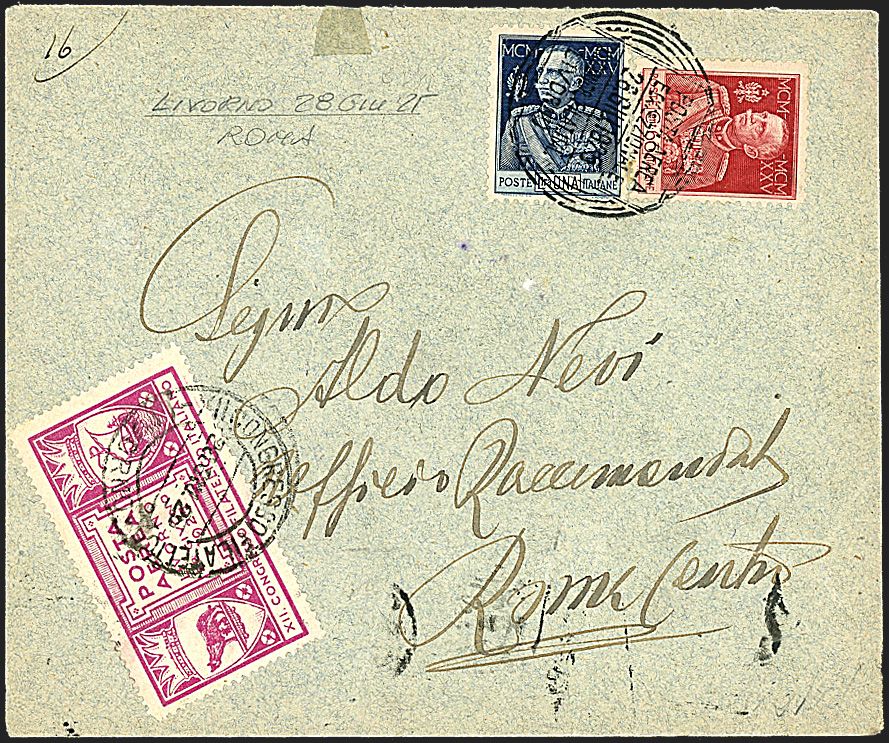 16
LIVORNO 28 GIU 25
ROMA
MCM MCM
XXV
POSTE LIRE UNA ITALIANE
MCM MCM
XXV
LIVORNO
POSTA AEREA
Signor
Aldo Nevi
Officio Raccomandate
Roma Centro
XII CONGRESSO FILATELICO
XII. CONGRESSO FILATELICO ITALIANO
POSTA
AEREA